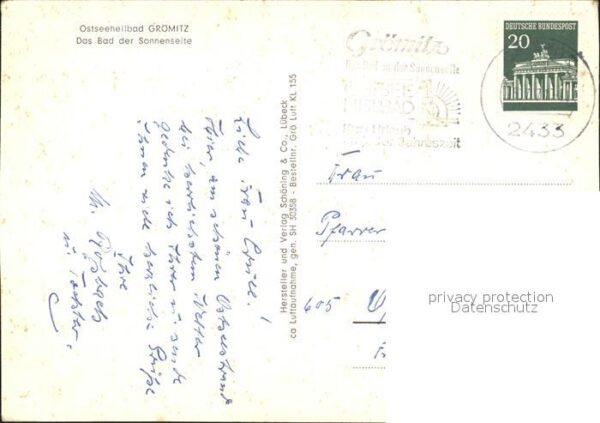 Ostseeheilbad GRÖMITZ
Das Bad der Sonnenseite
Grömitz
Das Bad an der Sonnenseite
OSTSEE
HEILBAD
Kur + Urlaub
zu jeder Jahreszeit
DEUTSCHE BUNDESPOST
20
2433
Hersteller und Verlag Schöning & Co., Lübeck
ca Luftaufnahme, gen. SH 50358 - Bestellnr. Grö Luft KL 155
Liebe Frau !
Hier, am schönen Ostseestrand
bei herrlichstem Wetter
gedenke ich Ihrer u. sende
Ihnen viele herzliche Grüße
Ihre
M.
u. Tochter.
Frau
Pfarrer
605
privacy protection
Datenschutz